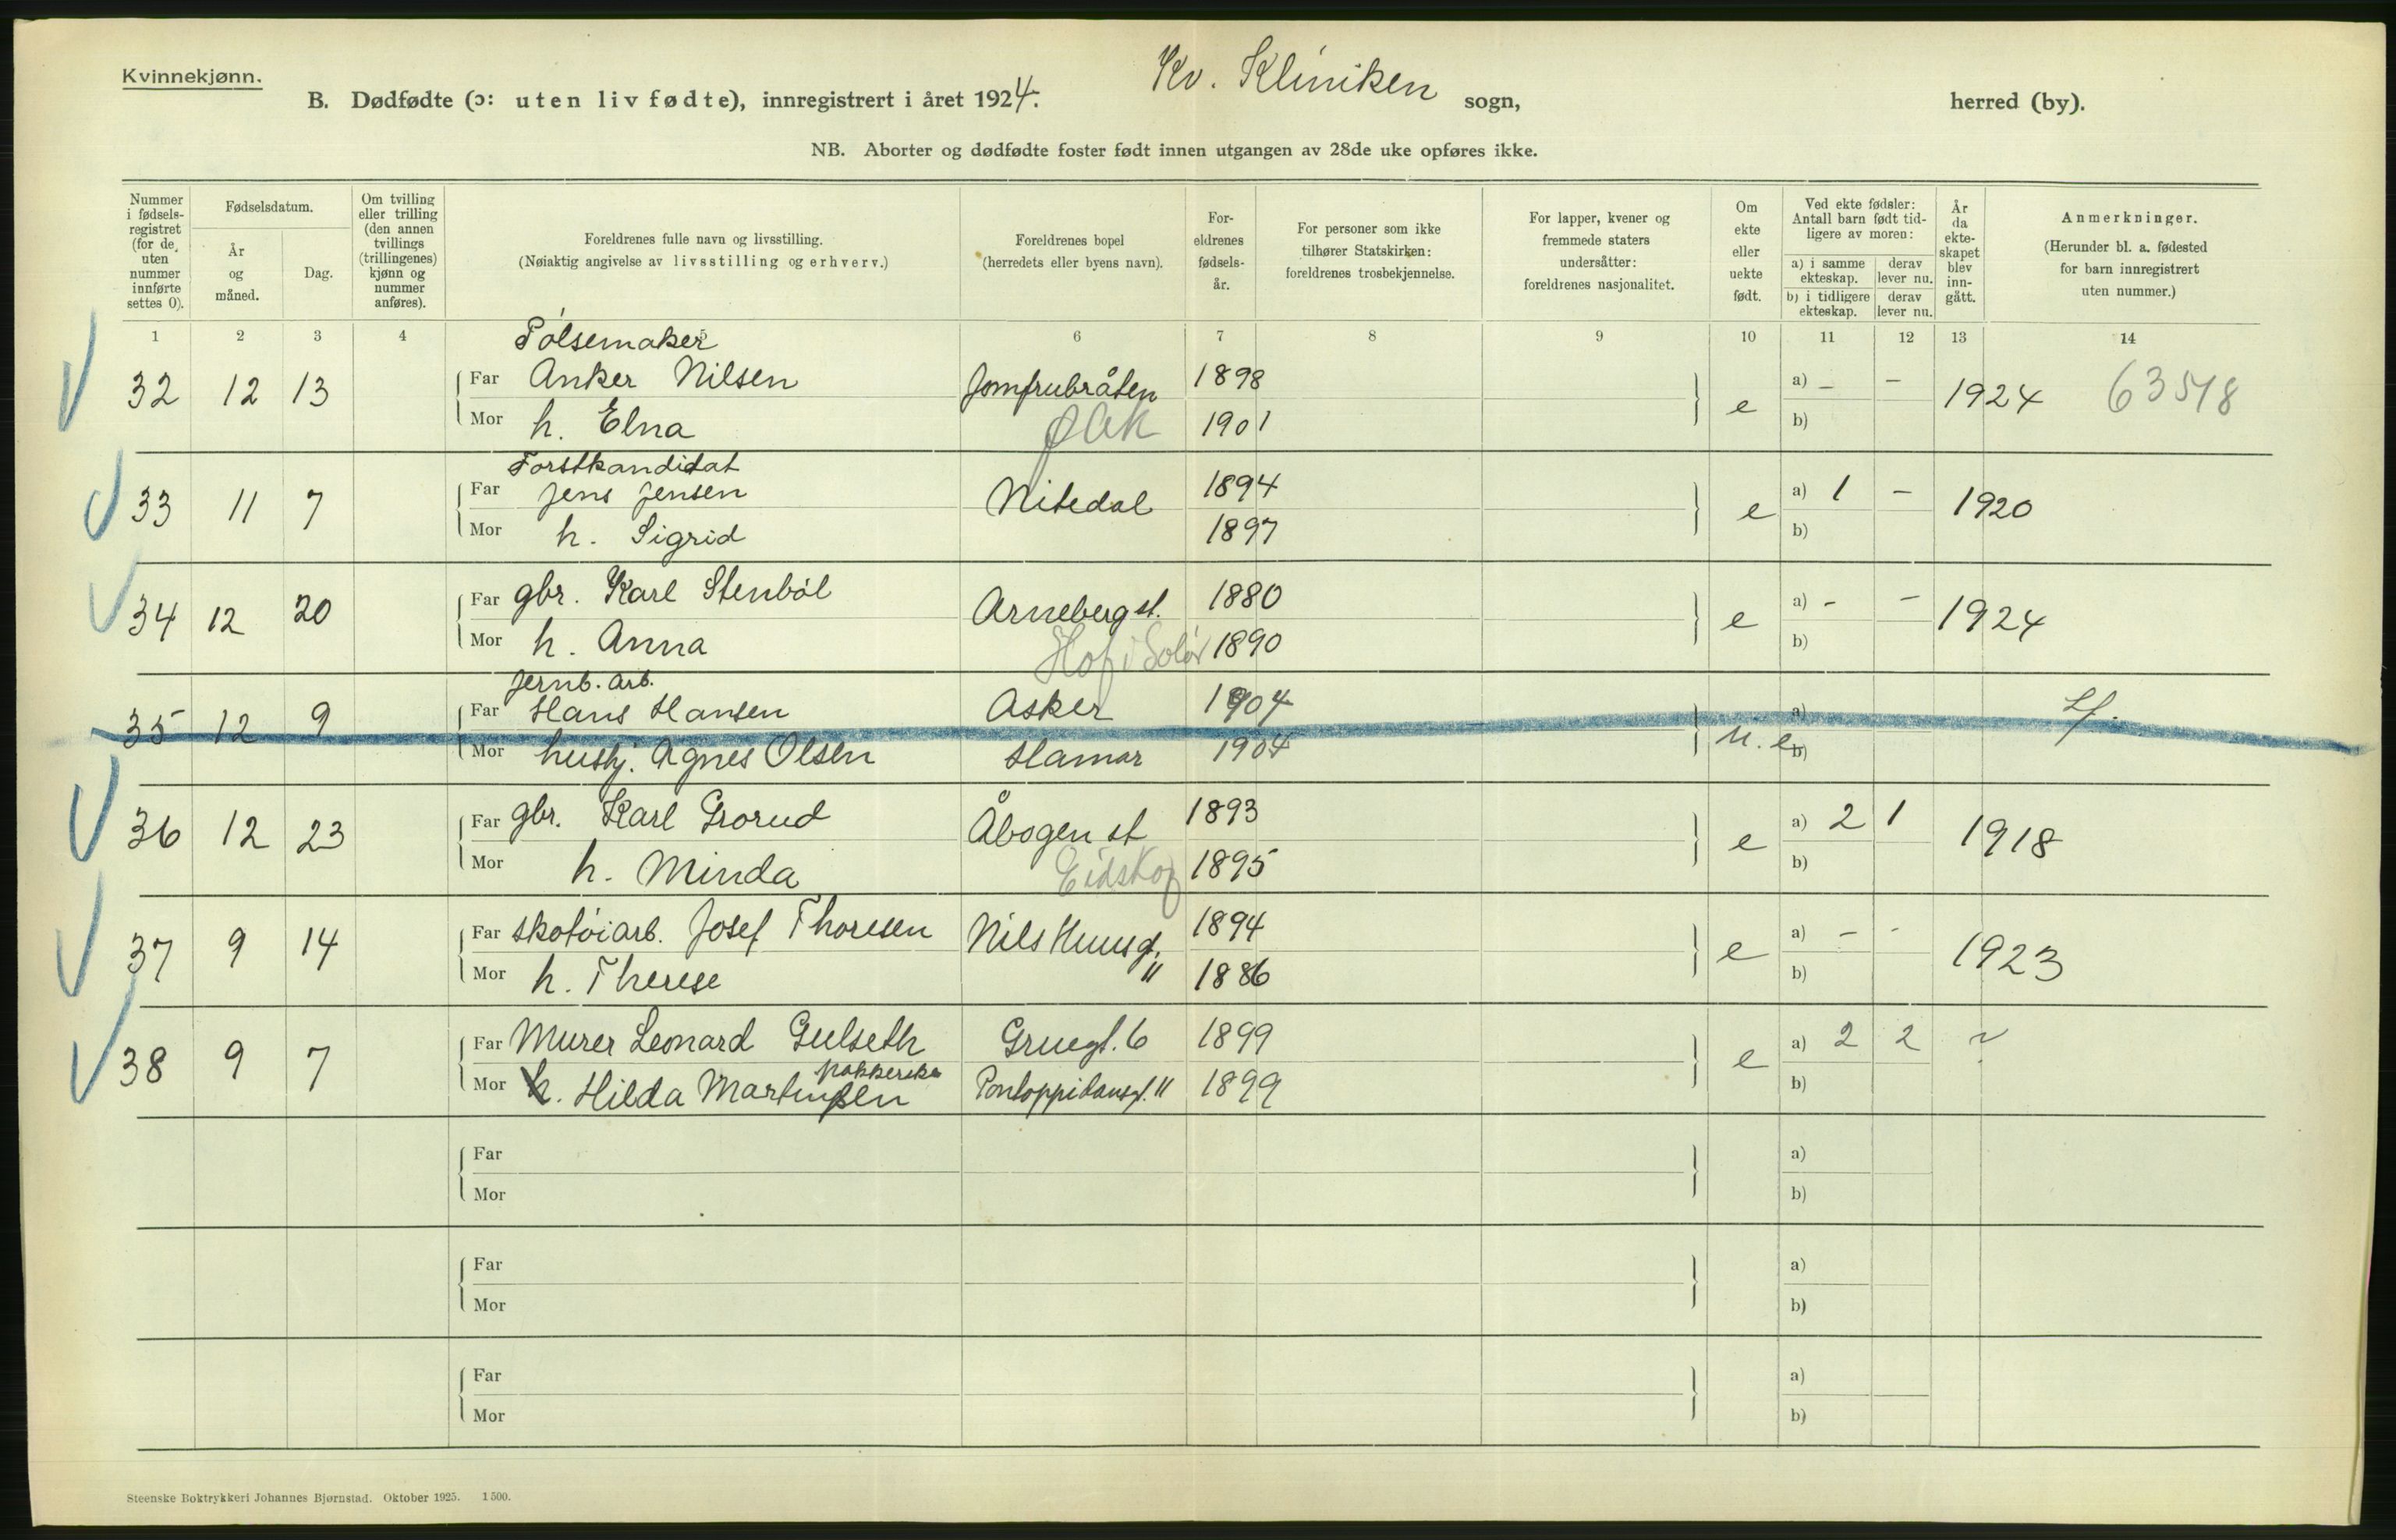 Kvinnekjønn.
B. Dødfødte (ɔ: uten liv fødte), innregistrert i året 1924. Kv. Kliniken sogn, herred (by).
NB. Aborter og dødfødte foster født innen utgangen av 28de uke opføres ikke.
Nummer i fødsels-registret (for de uten nummer innførte settes 0).
Fødselsdatum.
År og måned.
Dag.
Om tvilling eller trilling (den annen tvillings (trillingenes) kjønn og nummer anføres).
Foreldrenes fulle navn og livsstilling.
(Nøiaktig angivelse av livsstilling og erhverv.)
Foreldrenes bopel
(herredets eller byens navn).
For-eldrenes fødsels-år.
For personer som ikke tilhører Statskirken: foreldrenes trosbekjennelse.
For lapper, kvener og fremmede staters undersåtter: foreldrenes nasjonalitet.
Om ekte eller uekte født.
Ved ekte fødsler: Antall barn født tid-ligere av moren:
a) i samme ekteskap. derav lever nu.
b) i tidligere ekteskap. derav lever nu.
År da ekte-skapet blev inn-gått.
Anmerkninger.
(Herunder bl. a. fødested for barn innregistrert uten nummer.)
1 2 3 4 5 6 7 8 9 10 11 12 13 14
Pølsemaker
32 12 13 Far Anker Nilsen Jomfrubråten 1898 e a) – – 1924 63548
Mor h. Elna Ø Ak 1901 b)
Forstkandidat
33 11 7 Far Jens Jensen Nitedal 1894 e a) 1 – 1920
Mor h. Sigrid 1897 b)
34 12 20 Far gbr. Karl Stenböl Arneberg st. 1880 e a) - – 1924
Mor h. Anna Hof i Solør 1890 b)
Jernb. arb.
35 12 9 Far Hans Hansen Asker 1904 u. e. a)
Mor hushj. Agnes Olsen Hamar 1904 b)
36 12 23 Far gbr. Karl Grorud Åbogen st 1893 e a) 2 1 1918
Mor h. Minda Eidskog 1895 b)
37 9 14 Far skotöiarb. Josef Thoresen Nils Huusg. 1894 e a) – - 1923
Mor h. Therese " 1886 b)
38 9 7 Far Murer Leonard Gulseth Gruegt. 6 1899 e a) 2 2 ?
pakkerske
Mor h. Hilda Martinsen Pontoppidansgt. 11 1899 b)
Far a)
Mor b)
Far a)
Mor b)
Far a)
Mor b)
Steenske Boktrykkeri Johannes Bjørnstad. Oktober 1925. 1500.